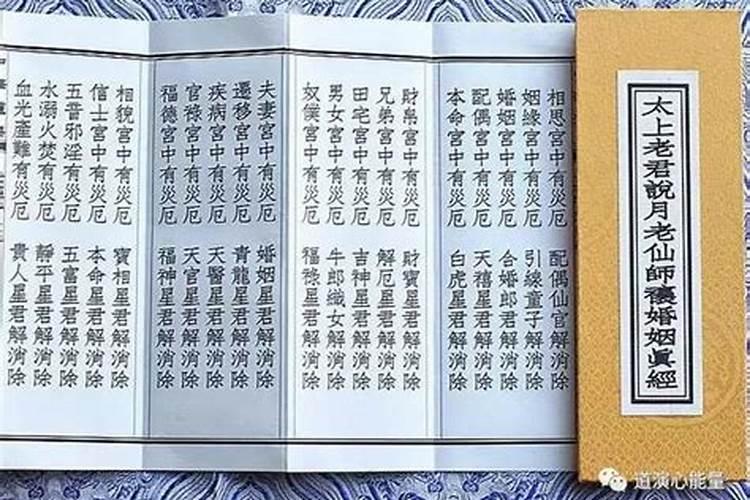 太上老君說月老仙師禳婚姻眞經
相思宮中有災厄 配偶仙官解消除
姻緣宮中有災厄 引線童子解消除
婚姻宮中有災厄 合婚郎君解消除
配偶宮中有災厄 天禧星君解消除
本命宮中有災厄 白虎星君解消除
財帛宮中有災厄 財寶星君解消除
兄弟宮中有災厄 解厄星君解消除
田宅宮中有災厄 吉神星君解消除
男女宮中有災厄 牛郎織女解消除
奴僕宮中有災厄 福祿星君解消除
夫妻宮中有災厄 婚姻星君解消除
遷移宮中有災厄 青龍星君解消除
疾病宮中有災厄 天醫星君解消除
官祿宮中有災厄 天官星君解消除
福德宮中有災厄 福神星君解消除
相貌宮中有災厄 寶相星君解消除
信士宮中有災厄 本命星君解消除
五音邪淫有災厄 五富星君解消除
水溺火焚有災厄 靜平星君解消除
血光產難有災厄 貴人星君解消除
道演心能量